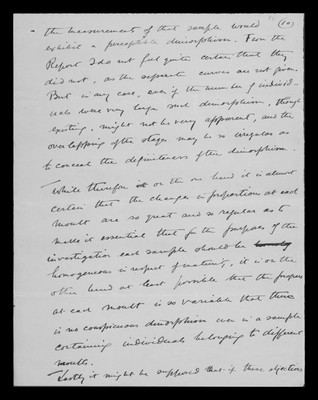 (10)
the measurements of that sample would
exhibit a perceptible dimorphism. From the
Report I do not feel quite certain that they
did not, as the separate curves are not given.
But in any case, even if the number of individ-
uals were very large such dimorphism, though
existing, might not be very apparent, and the
overlapping of the stages may be so irregular as
to conceal the definiteness of the dimorphism.
While therefore on the one hand it is almost
certain that the changes in proportions at each
moult are so great and so regular as to
make it essential that for the purposes of the
investigation each sample should be
homogeneous in respect of maturity, it is on the
other hand at least possible that the progress
at each moult is so variable that there
is no conspicuous dimorphism even in a sample
containing individuals belonging to different
moults.
Lastly it might be supposed that if these objections